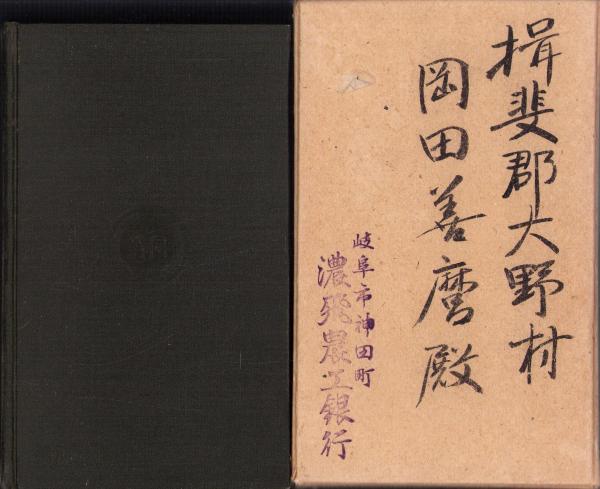 揖斐郡大野村
岡田善麿殿
岐阜市神田町
濃飛農工銀行